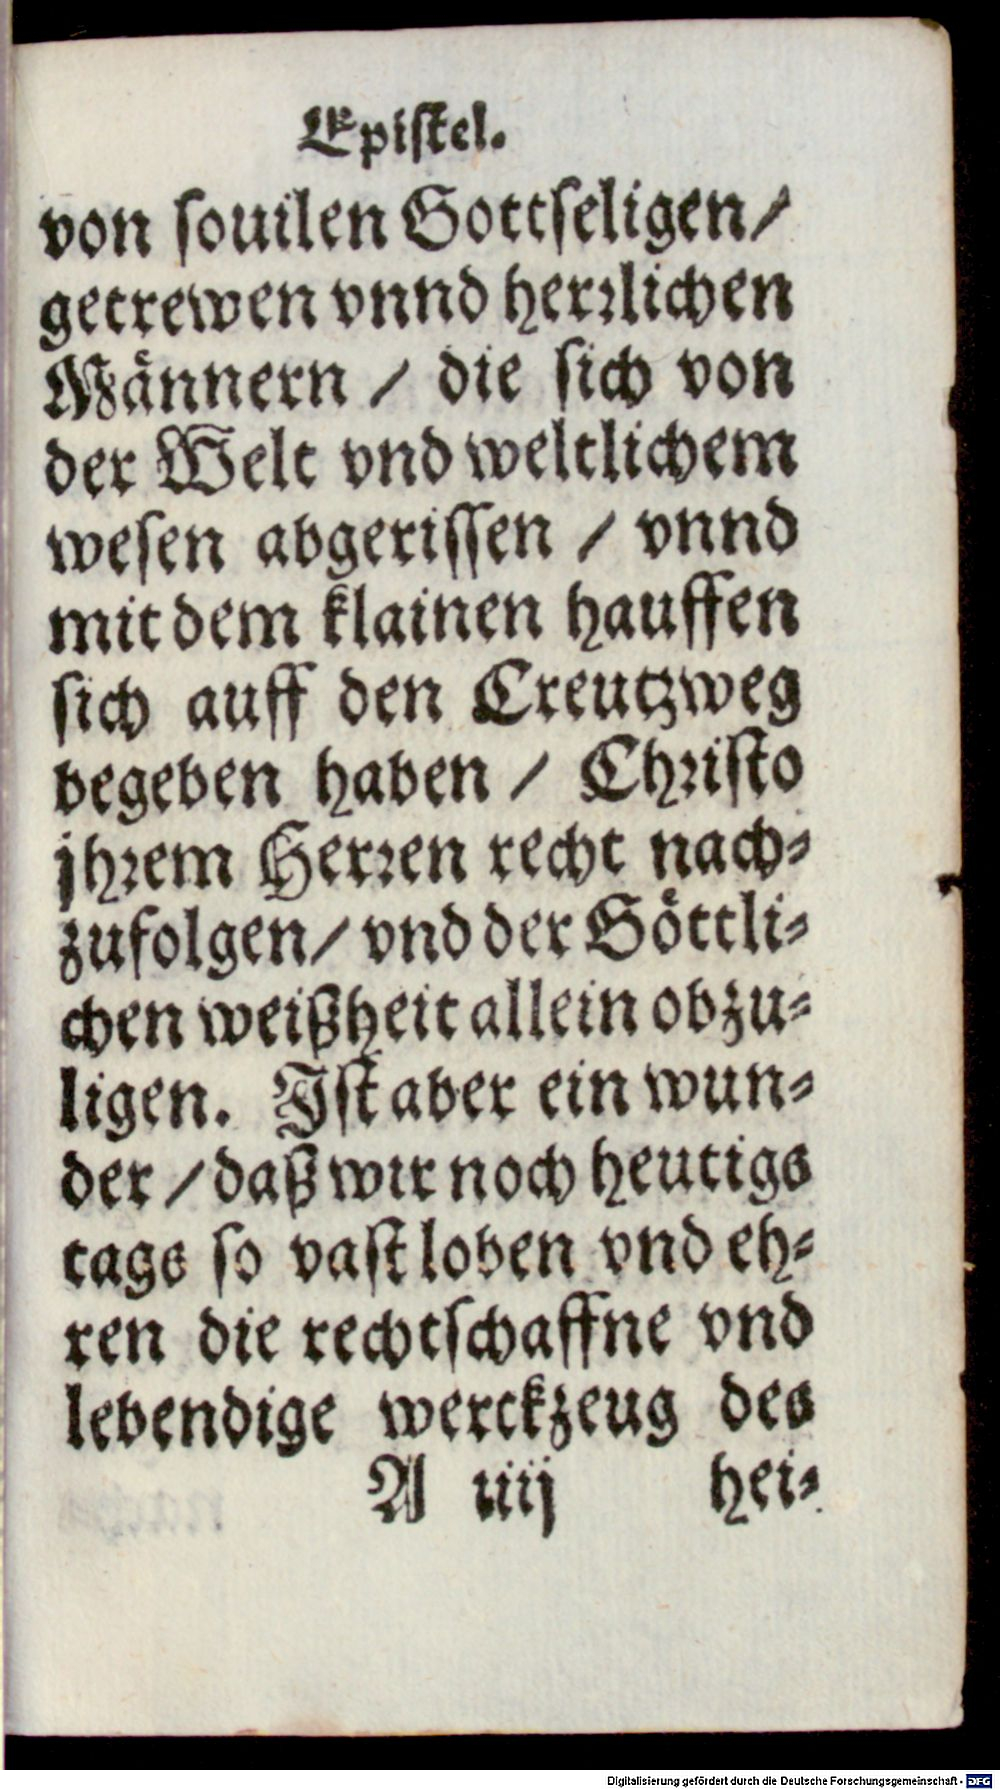 Epistel.
von souilen Gottseligen/
getrewen vnnd herrlichen
Männern / die sich von
der Welt vnd weltlichem
wesen abgerissen / vnnd
mit dem klainen hauffen
sich auff den Creutzweg
begeben haben / Christo
jhrem Herren recht nach-
zufolgen/ vnd der Göttli-
chen weißheit allein obzu-
ligen. Ist aber ein wun-
der / daß wir noch heutigs
tags so vast loben vnd eh-
ren die rechtschaffne vnd
lebendige werckzeug des
A iiij hei-
Digitalisierung gefördert durch die Deutsche Forschungsgemeinschaft - DFG